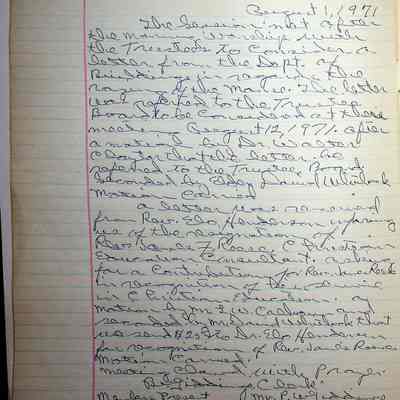 August 1, 1971
The Session met after
the morning Worship with
the Trustees to Consider a
letter from the Dept. of
Buildings in regard to the
razing of the Manse. The letter
was referred to the Trustee
Board to be Considered at there
meeting August 12, 1971. after
a motion by Dr. Walter
that the letter be
referred to the Trustee Board
seconded by Elder Whitlock
Motion Carried
a letter was received
from Rev. Elo Henderson
us of the resignation of
Rev. James F. Reese, Christian
Education Consultant.
for a Contribution for Rev. Reese
in recognition of his service
in Christian Education. a
motion by Mr. E. W.
seconded by Whitlock that
we send $25 to Dr. Elo Henderson
for recognition of Rev. James Reese
Motion Carried.
meeting Closed with Prayer
Clerk
Members Present Mrs. P.